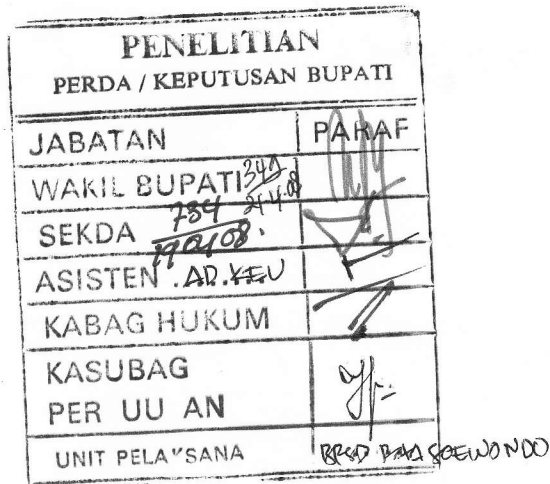 PENELITIAN
PERDA / KEPUTUSAN BUPATI
JABATAN PARAF
WAKIL BUPATI 342
SEKDA 784
ASISTEN . AD. KEU
KABAG HUKUM
KASUBAG
PER UU AN
UNIT PELAKSANA BRSD RAA SOEWONDO